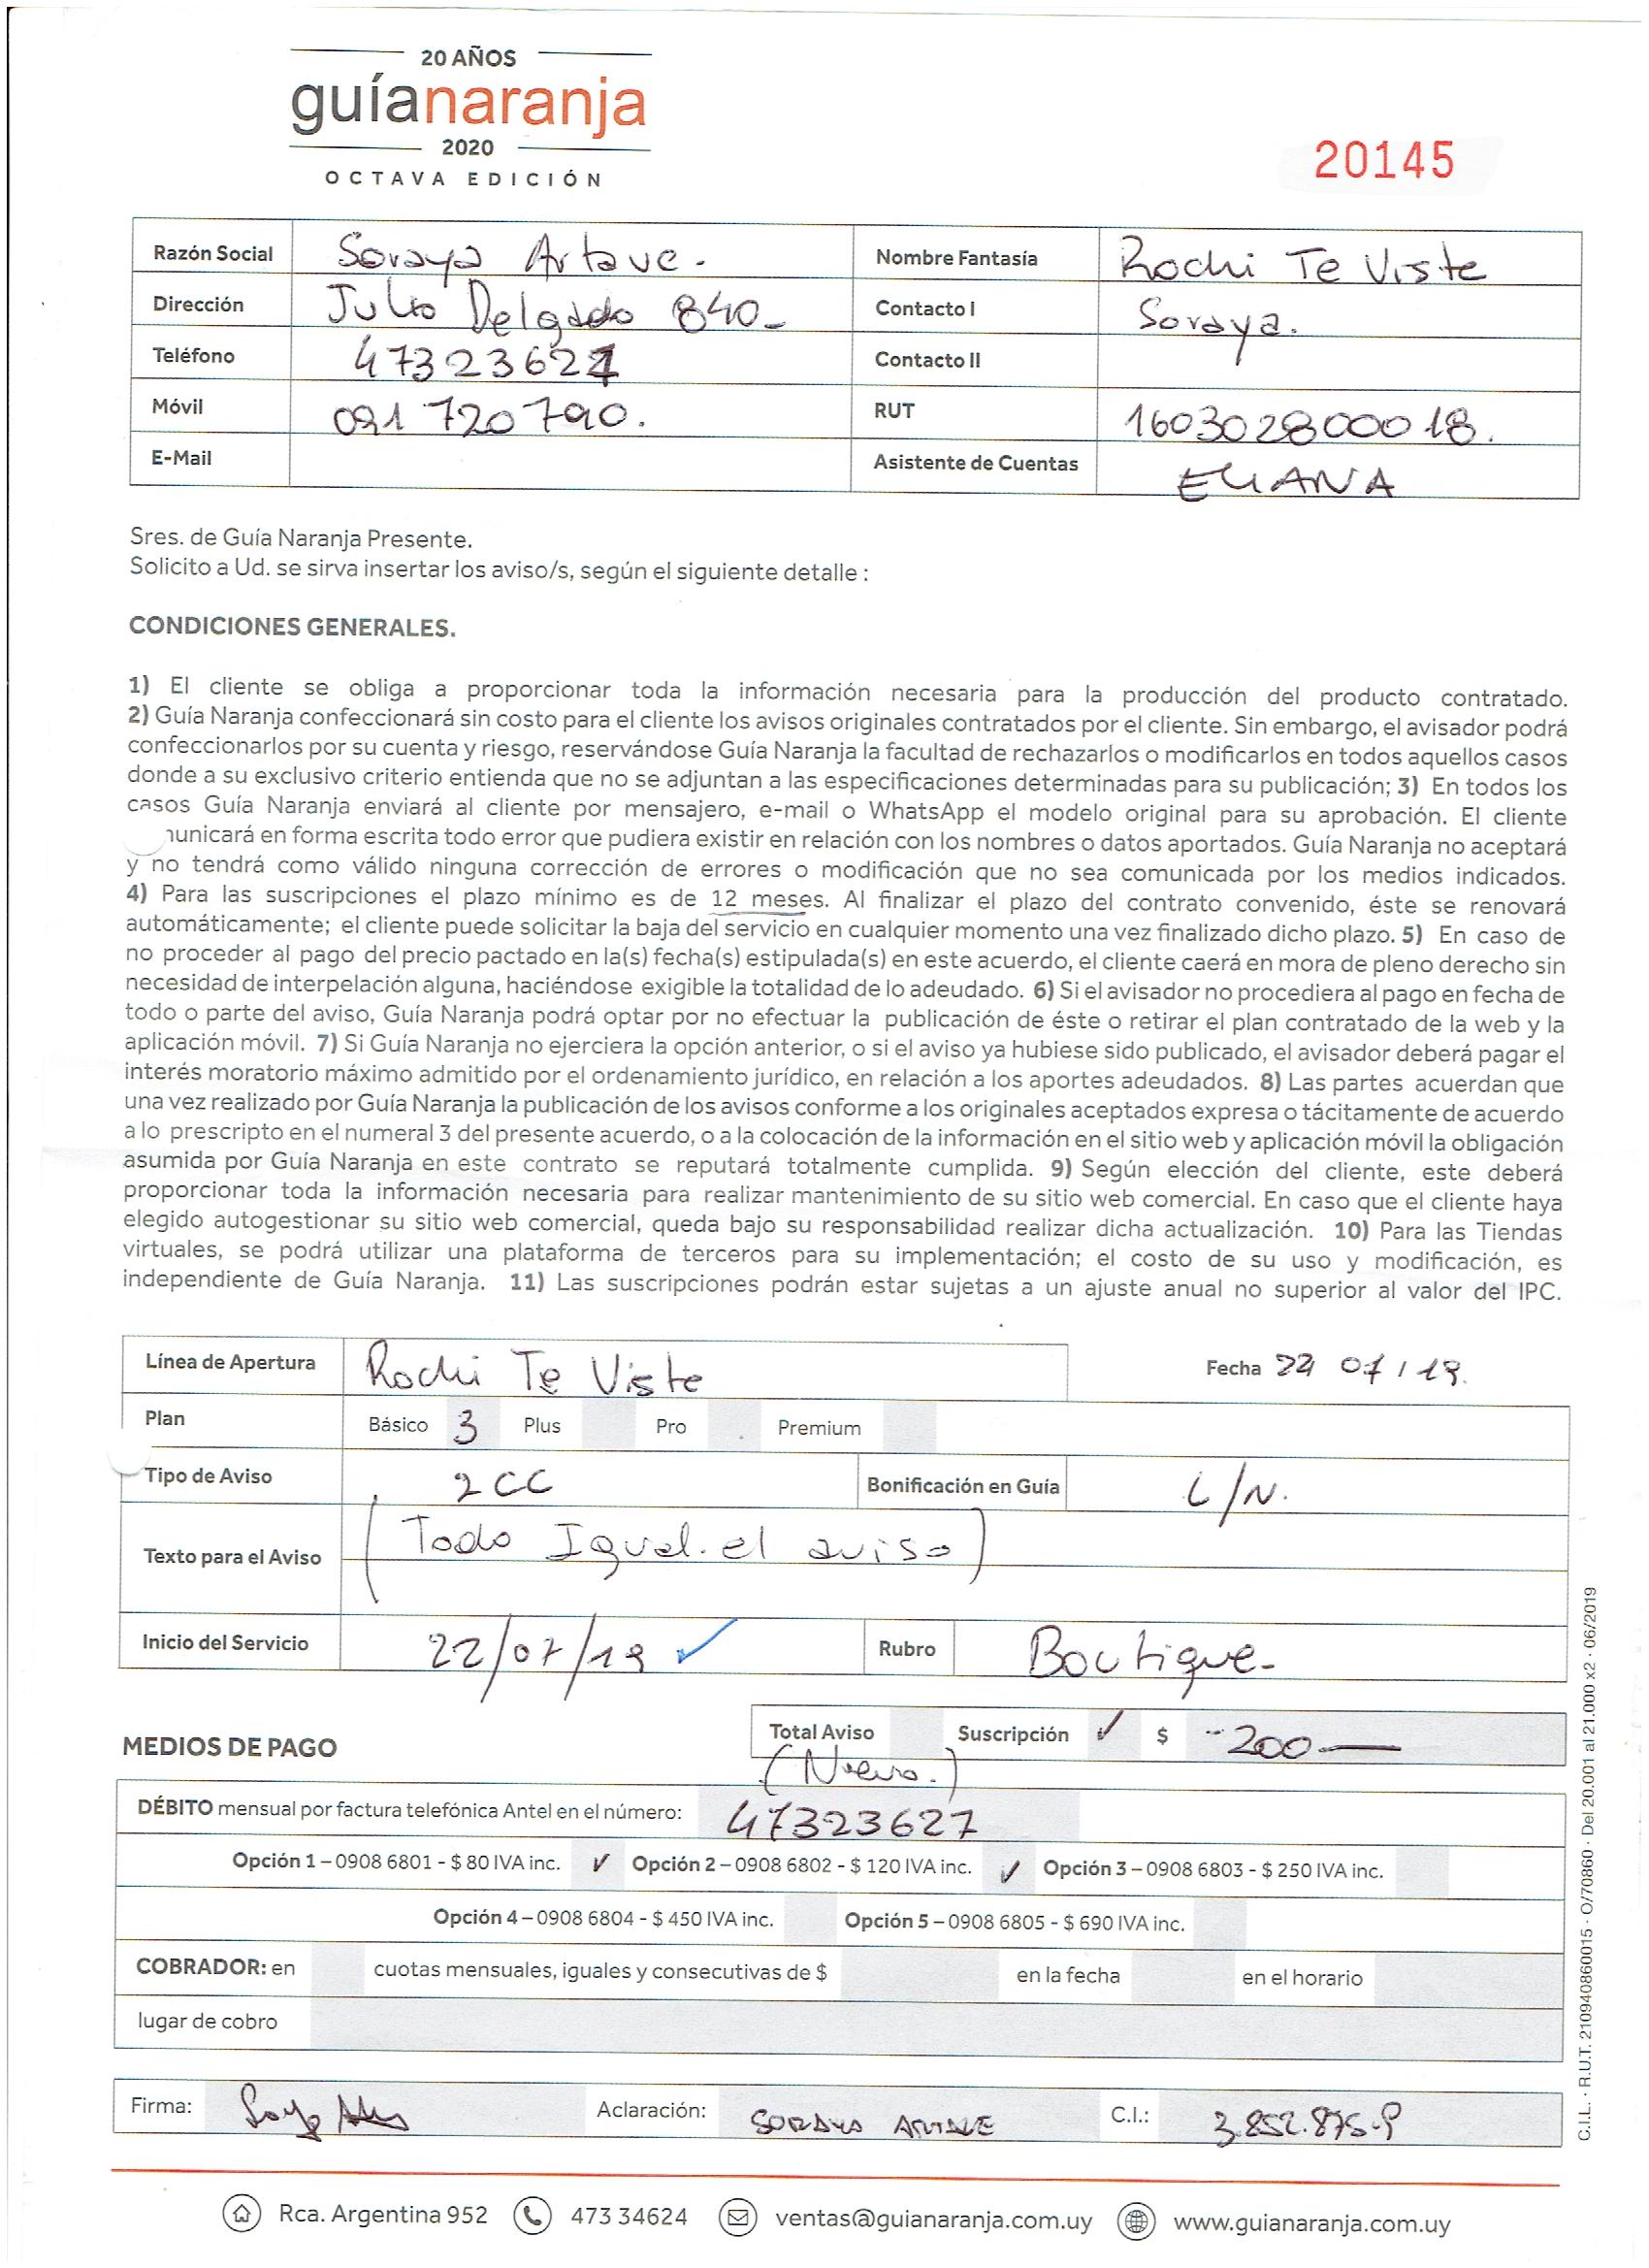 20 AÑOS
guíanaranja
2020
OCTAVA EDICIÓN
20145
Razón Social Soraya Artave. Nombre Fantasía Rochi Te Viste
Dirección Julio Delgado 840 Contacto I Soraya.
Teléfono 47323627 Contacto II
Móvil 091 720 790. RUT 160302800018.
E-Mail Asistente de Cuentas ELIANA
Sres. de Guía Naranja Presente.
Solicito a Ud. se sirva insertar los aviso/s, según el siguiente detalle :
CONDICIONES GENERALES.
1) El cliente se obliga a proporcionar toda la información necesaria para la producción del producto contratado.
2) Guía Naranja confeccionará sin costo para el cliente los avisos originales contratados por el cliente. Sin embargo, el avisador podrá
confeccionarlos por su cuenta y riesgo, reservándose Guía Naranja la facultad de rechazarlos o modificarlos en todos aquellos casos
donde a su exclusivo criterio entienda que no se adjuntan a las especificaciones determinadas para su publicación; 3) En todos los
casos Guía Naranja enviará al cliente por mensajero, e-mail o WhatsApp el modelo original para su aprobación. El cliente
unicará en forma escrita todo error que pudiera existir en relación con los nombres o datos aportados. Guía Naranja no aceptará
y no tendrá como válido ninguna corrección de errores o modificación que no sea comunicada por los medios indicados.
4) Para las suscripciones el plazo mínimo es de 12 meses. Al finalizar el plazo del contrato convenido, éste se renovará
automáticamente; el cliente puede solicitar la baja del servicio en cualquier momento una vez finalizado dicho plazo. 5) En caso de
no proceder al pago del precio pactado en la(s) fecha(s) estipulada(s) en este acuerdo, el cliente caerá en mora de pleno derecho sin
necesidad de interpelación alguna, haciéndose exigible la totalidad de lo adeudado. 6) Si el avisador no procediera al pago en fecha de
todo o parte del aviso, Guía Naranja podrá optar por no efectuar la publicación de éste o retirar el plan contratado de la web y la
aplicación móvil. 7) Si Guía Naranja no ejerciera la opción anterior, o si el aviso ya hubiese sido publicado, el avisador deberá pagar el
interés moratorio máximo admitido por el ordenamiento jurídico, en relación a los aportes adeudados. 8) Las partes acuerdan que
una vez realizado por Guía Naranja la publicación de los avisos conforme a los originales aceptados expresa o tácitamente de acuerdo
a lo prescripto en el numeral 3 del presente acuerdo, o a la colocación de la información en el sitio web y aplicación móvil la obligación
asumida por Guía Naranja en este contrato se reputará totalmente cumplida. 9) Según elección del cliente, este deberá
proporcionar toda la información necesaria para realizar mantenimiento de su sitio web comercial. En caso que el cliente haya
elegido autogestionar su sitio web comercial, queda bajo su responsabilidad realizar dicha actualización. 10) Para las Tiendas
virtuales, se podrá utilizar una plataforma de terceros para su implementación; el costo de su uso y modificación, es
independiente de Guía Naranja. 11) Las suscripciones podrán estar sujetas a un ajuste anual no superior al valor del IPC.
Línea de Apertura Rochi Te Viste Fecha 22 07 / 19.
Plan Básico 3 Plus Pro Premium
Tipo de Aviso 2CC Bonificación en Guía L/N.
Texto para el Aviso (Todo Igual. el aviso)
Inicio del Servicio 22/07/19 ✓ Rubro Boutique
MEDIOS DE PAGO Total Aviso Suscripción ✓ $ 200
(Nuevo.)
DÉBITO mensual por factura telefónica Antel en el número: 47323627
Opción 1 – 0908 6801 - $ 80 IVA inc. ✓ Opción 2 – 0908 6802 - $ 120 IVA inc. ✓ Opción 3 – 0908 6803 - $ 250 IVA inc.
Opción 4 – 0908 6804 - $ 450 IVA inc. Opción 5 – 0908 6805 - $ 690 IVA inc.
COBRADOR: en cuotas mensuales, iguales y consecutivas de $ en la fecha en el horario
lugar de cobro
Firma: Aclaración: SORAYA ARTAVE C.I.: 3.852.875-9
Rca. Argentina 952 473 34624 ventas@guianaranja.com.uy www.guianaranja.com.uy
C.I.L. · R.U.T. 210940860015 · O/70860 · Del 20.001 al 21.000 x2 · 06/2019